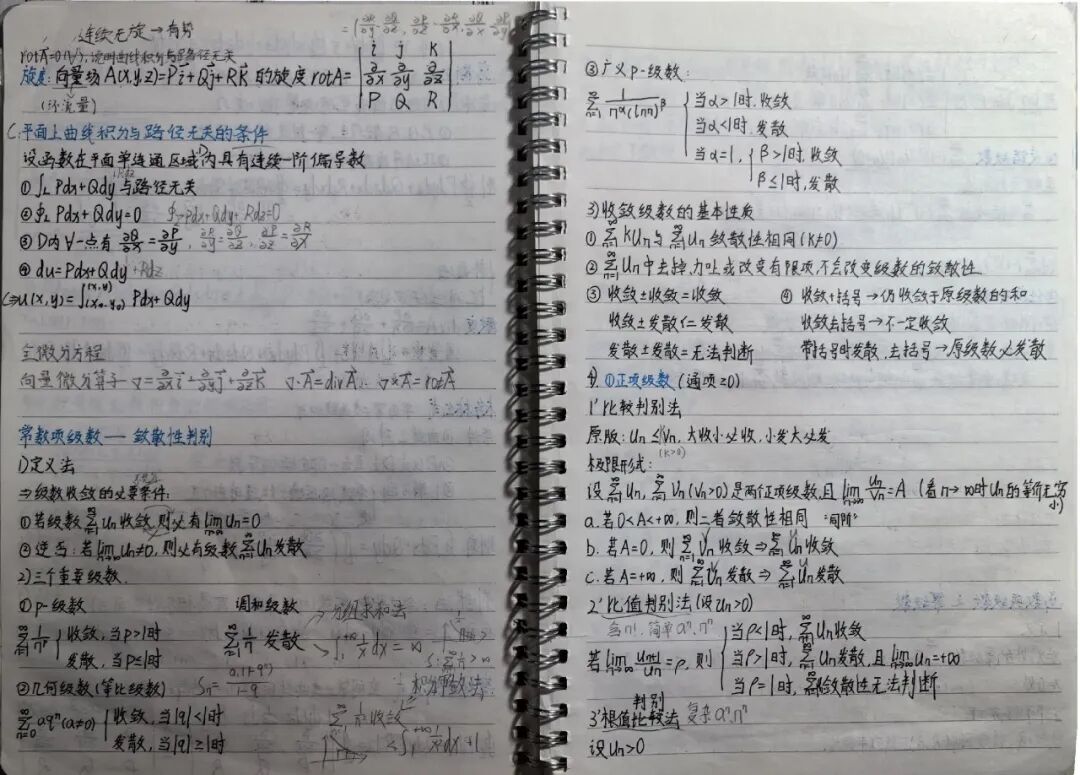 连续无旋→有势
rotA=0(V),说明曲线积分与路径无关
旋度:向量场A(x,y,z)=Pi+Qj+Rk 的旋度 rotA= | i j k |
| ∂/∂x ∂/∂y ∂/∂z |
| P Q R |
(环流量)
C.平面上曲线积分与路径无关的条件
设函数在平面单连通区域D内具有连续一阶偏导数
①∫L Pdx+Qdy与路径无关
②∮L Pdx+Qdy=0 ∮Pdx+Qdy+Rdz=0
③D内∀一点有 ∂Q/∂x=∂P/∂y, ∂R/∂y=∂Q/∂z, ∂P/∂z=∂R/∂x
④du=Pdx+Qdy+Rdz
⇒u(x,y)=∫(x₀,y₀)^(x,y) Pdx+Qdy
全微分方程
向量微分算子 ∇=∂/∂x i+∂/∂y j+∂/∂z k ∇·A=divA ∇×A=rotA
常数项级数——敛散性判别
1)定义法
⇒级数收敛的必要条件:
①若级数∑(n=1→∞)un收敛,则必有lim(n→∞)un=0
②逆否:若lim(n→∞)un≠0,则必有级数∑(n=1→∞)un发散
2)三个重要级数.
①p-级数 调和级数 →分组求和法
∑(n=1→∞)1/n^p { 收敛,当p>1时 ∑(n=1→∞)1/n 发散 ∫₁^(+∞)1/x dx=∞
发散,当p≤1时
②几何级数(等比级数) Sn=a(1-qⁿ)/(1-q) 积分
∑(n=0→∞)aqⁿ(a≠0) { 收敛,当|q|<1时 收敛
发散,当|q|≥1时
③广义p-级数:
∑(n=1→∞) 1/(n^α(lnn)^β) { 当α>1时.收敛
当α<1时.发散
当α=1, { β>1时,收敛
β≤1时,发散
3)收敛级数的基本性质
①∑(n=1→∞)kun与∑(n=1→∞)un敛散性相同(k≠0)
②∑(n=1→∞)un中去掉,加上或改变有限项,不会改变级数的敛散性
③ 收敛±收敛=收敛 ④ 收敛+括号→仍收敛于原级数的和
收敛±发散=发散 收敛去括号→不一定收敛
发散±发散=无法判断 带括号时发散,去括号→原级数必发散
4).①正项级数(通项≥0)
1°比较判别法
原版:un≤kvn,大收小必收,小发大必发
(k>0)
极限形式:
设∑(n=1→∞)un,∑(n=1→∞)vn(vn>0)是两个正项级数,且lim(n→∞)un/vn=A (看n→∞时un的等价无穷小)
a.若0<A<+∞,则二者敛散性相同 "同阶"
b.若A=0,则∑(n=1→∞)vn收敛⇒∑(n=1→∞)un收敛
c.若A=+∞,则∑(n=1→∞)vn发散⇒∑(n=1→∞)un发散
2°比值判别法(设un>0)
含n!.简单aⁿ.nⁿ { 当ρ<1时,∑(n=1→∞)un收敛
若lim(n→∞)u(n+1)/un=ρ,则 当ρ>1时,∑(n=1→∞)un发散,且lim(n→∞)un=+∞
当ρ=1时,敛散性无法判断
判别
3°根值比较法 复杂aⁿ.nⁿ
设un>0